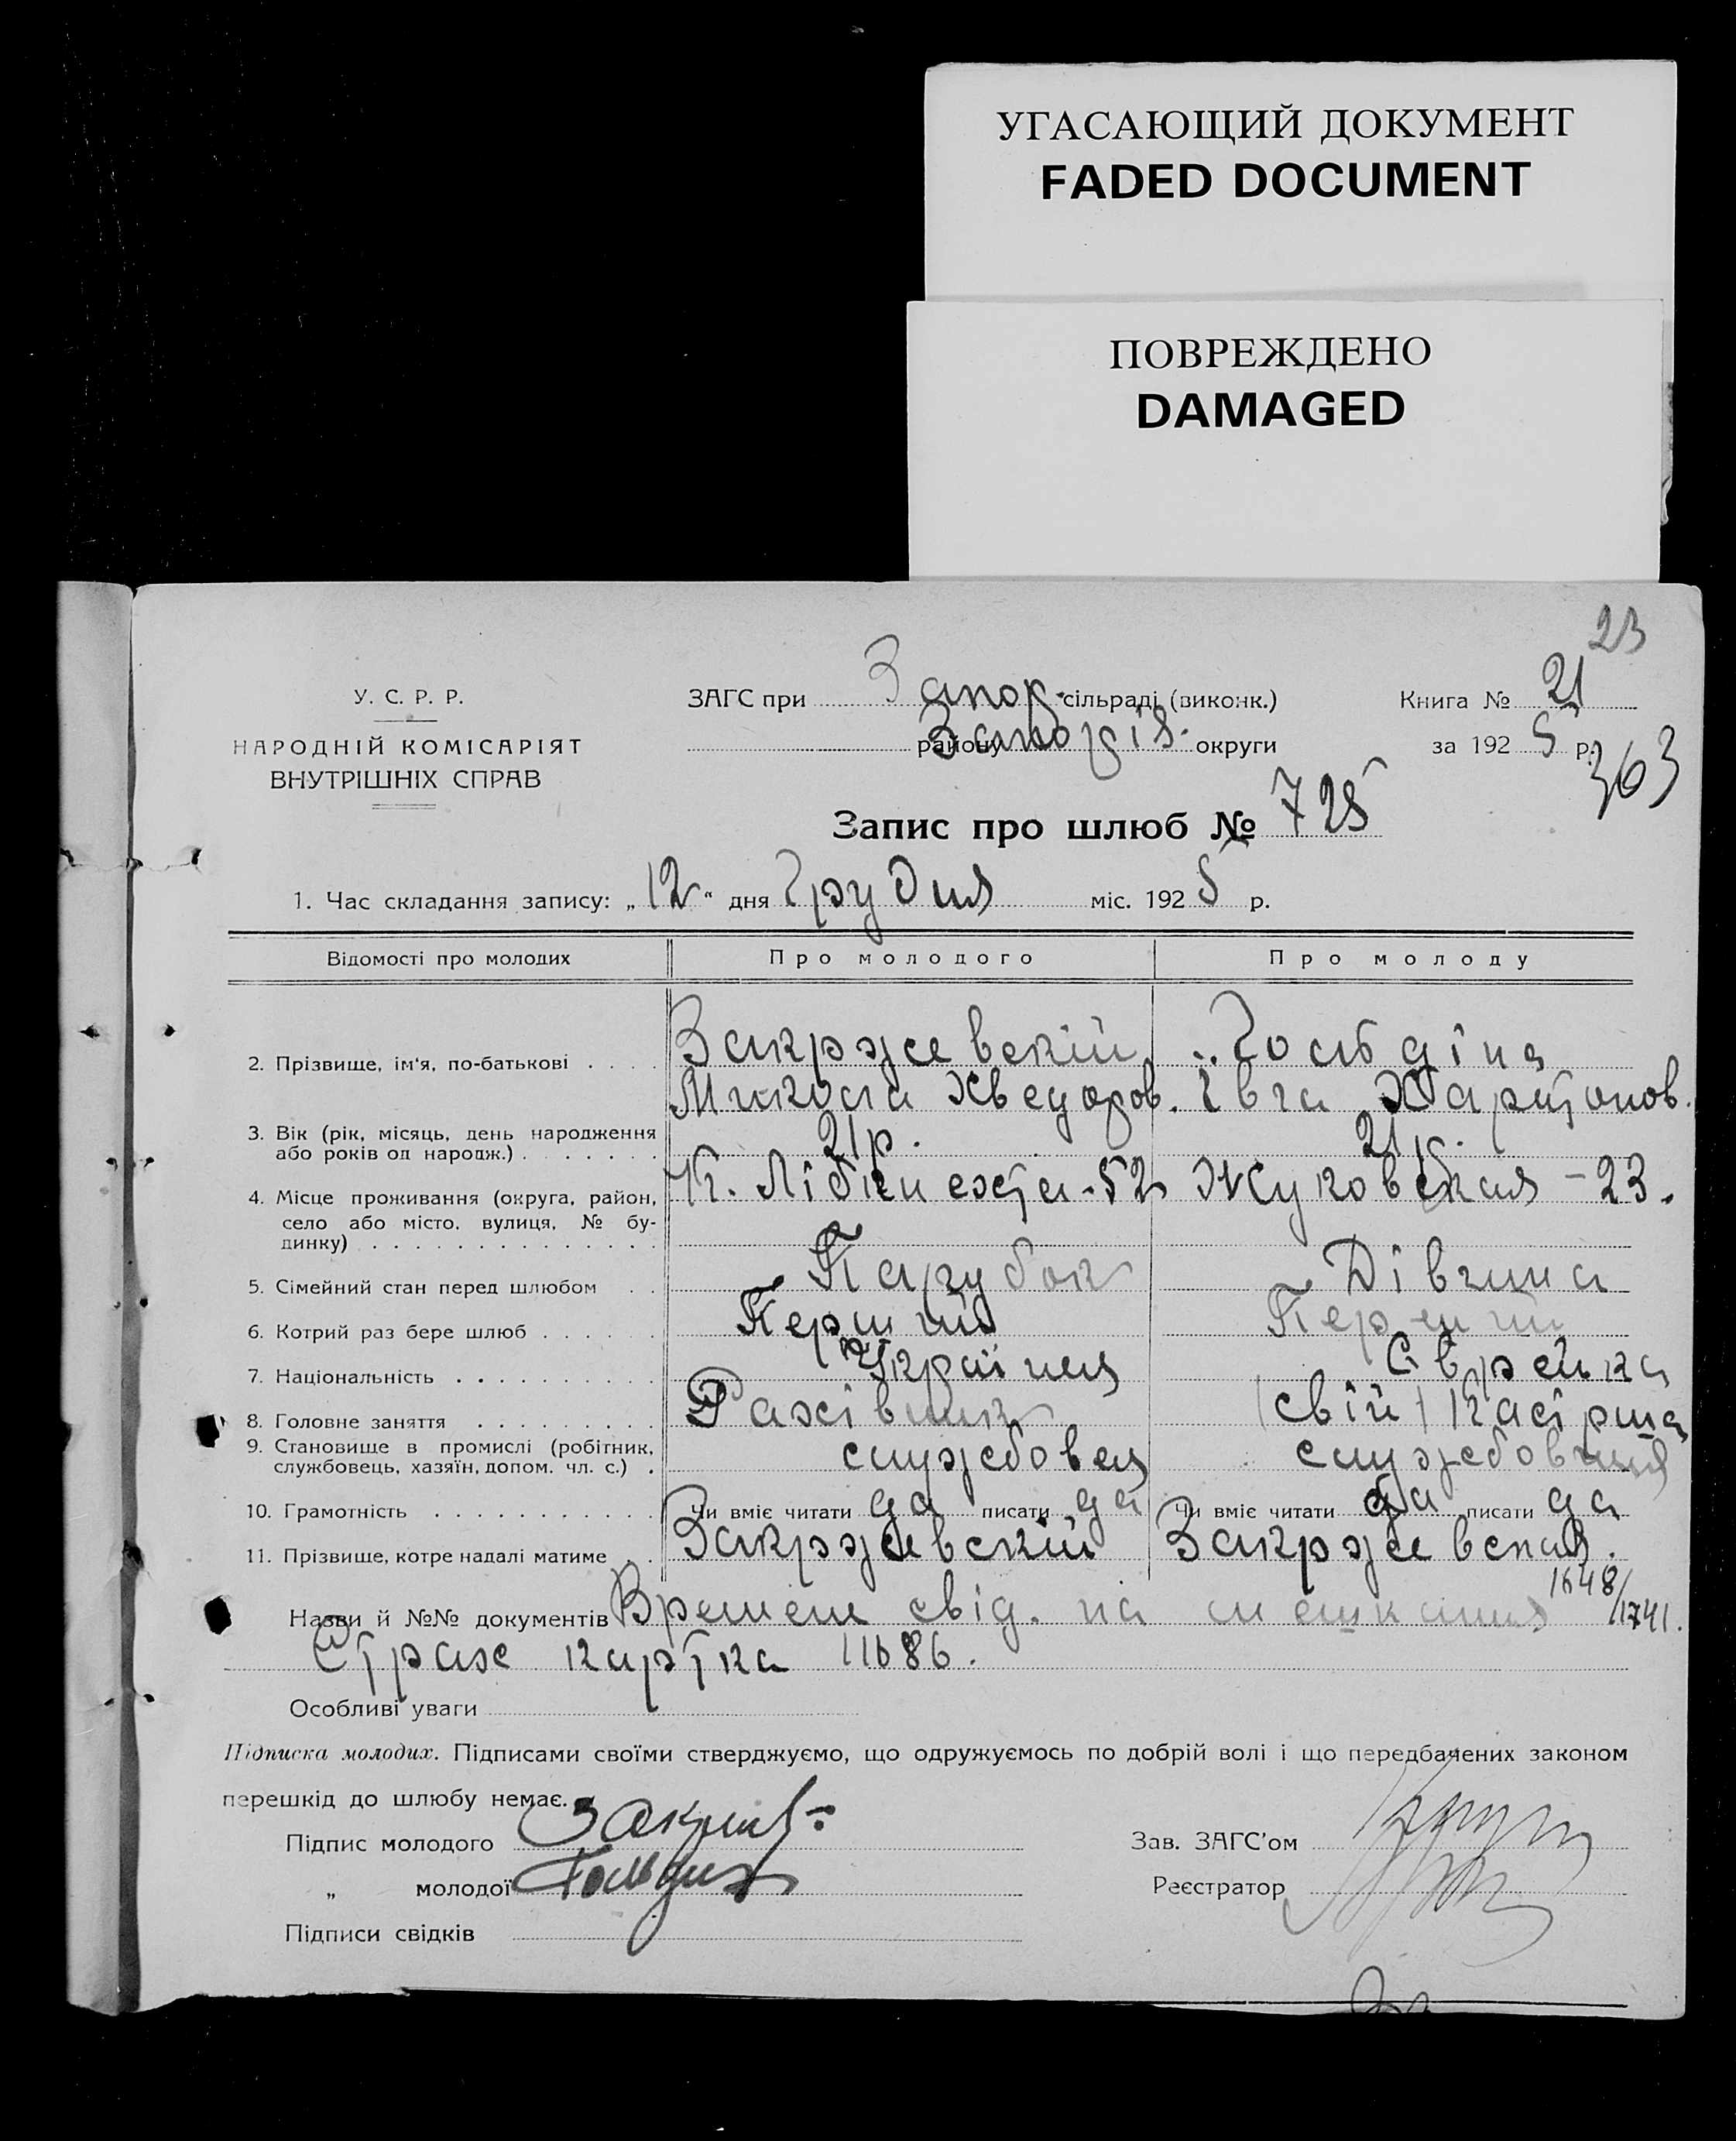 УГАСАЮЩИЙ ДОКУМЕНТ
FADED DOCUMENT
ПОВРЕЖДЕНО
DAMAGED
23
У. С. Р. Р.
НАРОДНІЙ КОМІСАРІЯТ
ВНУТРІШНІХ СПРАВ
ЗАГС при Запор. сільраді (виконк.)
району Запоріз. округи
Книга № 21
за 192 5 р.
363
Запис про шлюб № 725
1. Час складання запису: „ 12 “ дня Грудня міс. 192 5 р.
Відомості про молодих Про молодого Про молоду
2. Прізвище, ім'я, по-батькові Закржевскій Гольдіна
Микола Хведоров. Євга Харитонов.
3. Вік (рік, місяць, день народження або років од народж.) 21 р. 21 р.
4. Місце проживання (округа, район, село або місто, вулиця, № будинку) К. Лібкнехта - 52 Жуковская - 23.
5. Сімейний стан перед шлюбом Парубок Дівчина
6. Котрий раз бере шлюб Перший Перший
7. Національність Українец Єврейка
8. Головне заняття Рахівник (свій) Касірша
9. Становище в промислі (робітник, службовець, хазяїн, допом. чл. с.) службовец службовниця
10. Грамотність Чи вміє читати да писати да Чи вміє читати да писати да
11. Прізвище, котре надалі матиме Закржевскій Закржевская.
Назви й №№ документів Времен свід. на мешкання 1648/1741.
Страх картка 11686.
Особливі уваги
Підписка молодих. Підписами своїми стверджуємо, що одружуємось по добрій волі і що передбачених законом
перешкід до шлюбу немає.
Підпис молодого Зав. ЗАГС'ом
„ молодої Гольдина Реєстратор
Підписи свідків